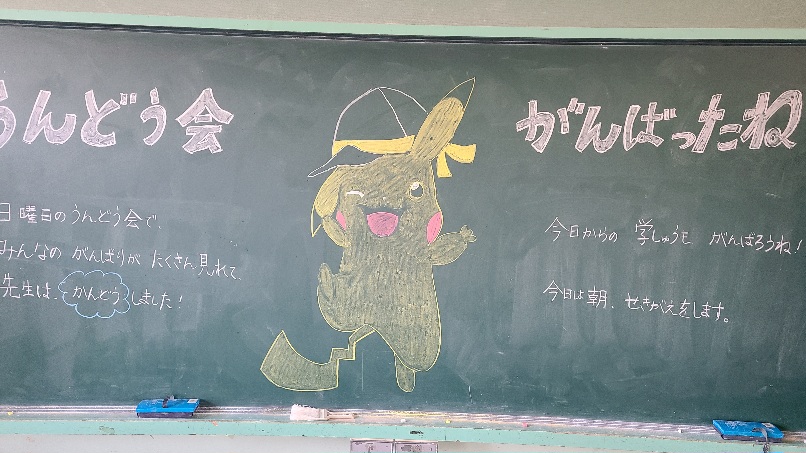 うんどう会
がんばったね
日曜日のうんどう会で、
みんなの がんばりが たくさん見れて、
先生は、かんどうしました!
今日からの 学しゅうも がんばろうね!
今日は朝、せきがえをします。